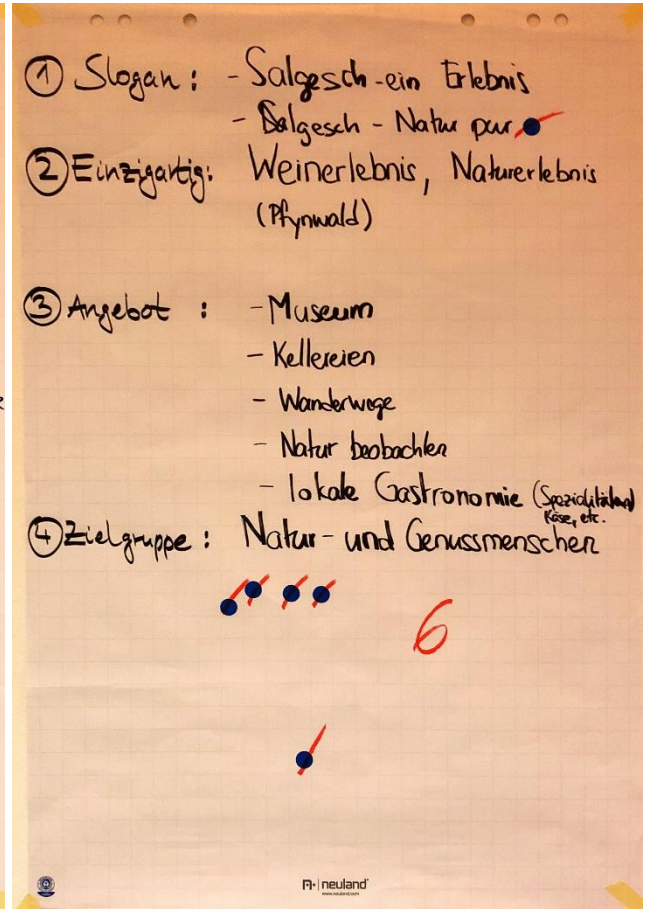 ① Slogan: - Salgesch - ein Erlebnis
- Salgesch - Natur pur
② Einzigartig: Weinerlebnis, Naturerlebnis
(Pfynwald)
③ Angebot : - Museum
- Kellereien
- Wanderwege
- Natur beobachten
- lokale Gastronomie (Spezialitäten)
Käse, etc.
④ Zielgruppe: Natur- und Genussmenschen
6
neuland
www.neuland.com